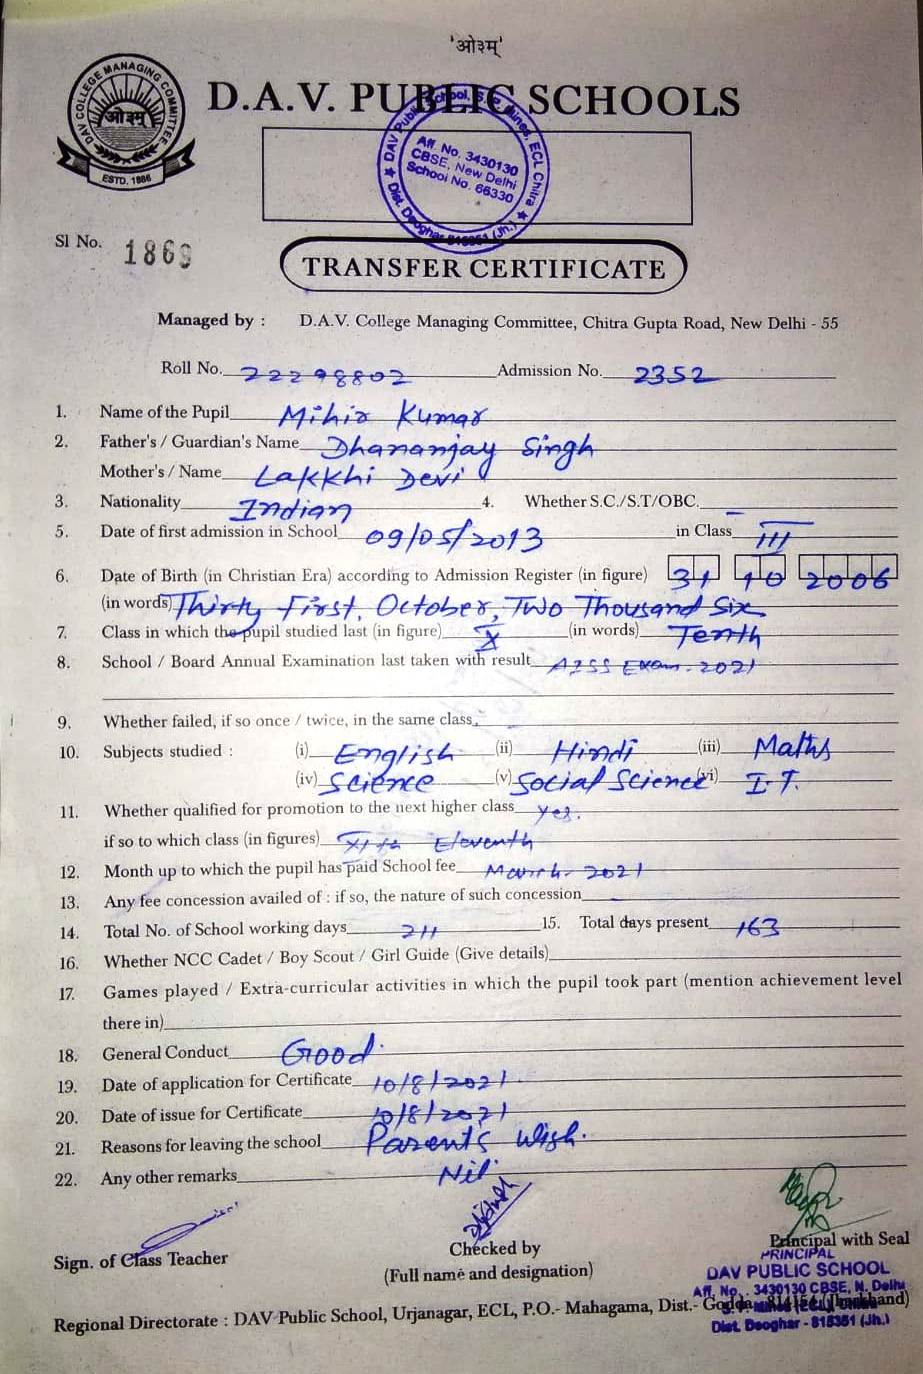 'ओ३म्'
DAV COLLEGE MANAGING COMMITTEE
ओ३म्
ESTD. 1886
D.A.V. PUBLIC SCHOOLS
DAV Public School, S.P. Mines, ECL Chitra
Aff. No. 3430130
CBSE, New Delhi
School No. 66330
Dist. Deoghar 815351 (Jh.)
Sl No. 1869
TRANSFER CERTIFICATE
Managed by : D.A.V. College Managing Committee, Chitra Gupta Road, New Delhi - 55
Roll No. 22298802 Admission No. 2352
1. Name of the Pupil Mihir Kumar
2. Father's / Guardian's Name Dhananjay Singh
Mother's / Name Lakkhi Devi
3. Nationality Indian 4. Whether S.C./S.T/OBC. —
5. Date of first admission in School 09/05/2013 in Class III
6. Date of Birth (in Christian Era) according to Admission Register (in figure) 31 10 2006
(in words) Thirty First, October, Two Thousand Six
7. Class in which the pupil studied last (in figure) X (in words) Tenth
8. School / Board Annual Examination last taken with result AISS Exam. 2021
9. Whether failed, if so once / twice, in the same class
10. Subjects studied : (i) English (ii) Hindi (iii) Maths
(iv) Science (v) Social Science (vi) I.T.
11. Whether qualified for promotion to the next higher class Yes.
if so to which class (in figures) XIth Eleventh
12. Month up to which the pupil has paid School fee March - 2021
13. Any fee concession availed of : if so, the nature of such concession
14. Total No. of School working days 211 15. Total days present 163
16. Whether NCC Cadet / Boy Scout / Girl Guide (Give details)
17. Games played / Extra-curricular activities in which the pupil took part (mention achievement level
there in)
18. General Conduct Good
19. Date of application for Certificate 10/8/2021
20. Date of issue for Certificate 10/8/2021
21. Reasons for leaving the school Parents Wish.
22. Any other remarks Nil
Sign. of Class Teacher
Checked by
(Full name and designation)
Principal with Seal
PRINCIPAL
DAV PUBLIC SCHOOL
Aff. No. 3430130 CBSE, N. Delhi
Regional Directorate : DAV Public School, Urjanagar, ECL, P.O.- Mahagama, Dist.- Godda - 814154 (Jharkhand)
Dist. Deoghar - 815351 (Jh.)